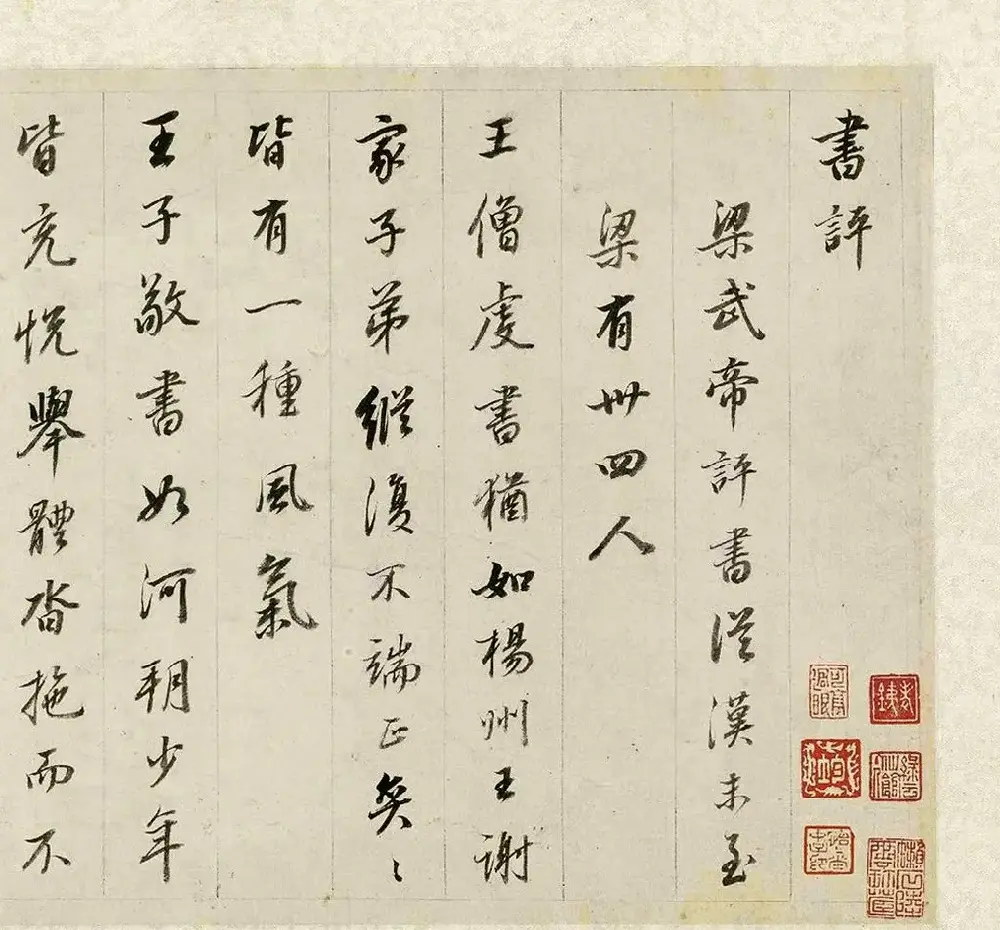 書評
梁武帝評書從漢末至
梁有卅四人
王僧虔書猶如楊州王謝
家子弟縱復不端正奕〻
皆有一種風氣
王子敬書如河朔少年
皆充悅舉體沓拖而不